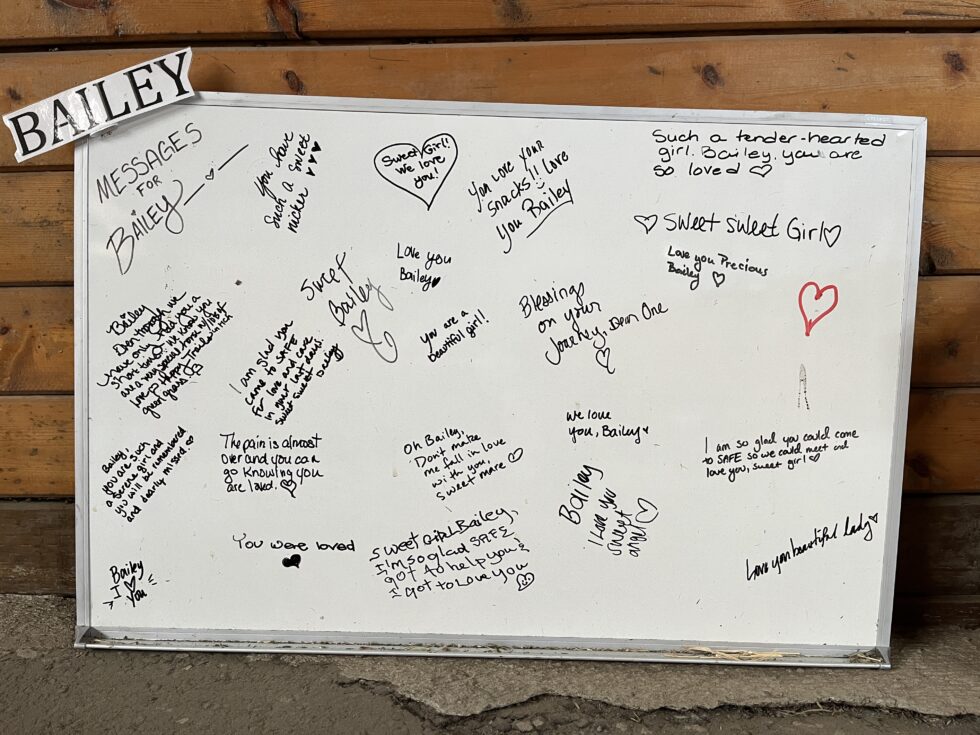 BAILEY
MESSAGES
FOR
BAILEY
You have
such a sweet
nicker
Sweet Girl!
We love
you!
You love your
snacks!! Love
you Bailey
Such a tender-hearted
girl. Bailey, you are
so loved
Sweet Sweet Girl
Love you Precious
Bailey
Love you
Bailey
Sweet
Bailey
Blessings
on your
Journey, Dear One
you are a
beautiful girl!
Bailey
Even though we
have only had you a
short time, we know you
are a very special horse w/ lots of
love. Happy Trails
green grass
I am glad you
came to SAFE
for love and care
in your last days.
Sweet sweet Bailey
we love
you, Bailey
Bailey,
you are such
a serene girl and
you will be remembered
and dearly missed.
The pain is almost
over and you can
go knowing you
are loved.
Oh Bailey,
Don't make
me fall in love
with you,
sweet mare
I am so glad you could come
to SAFE so we could meet and
love you, sweet girl
Bailey
I love you
sweet
You were loved
Sweet Girl Bailey,
I'm so glad SAFE
got to help you &
I got to Love You
Love you beautiful Lady
Bailey
I
You